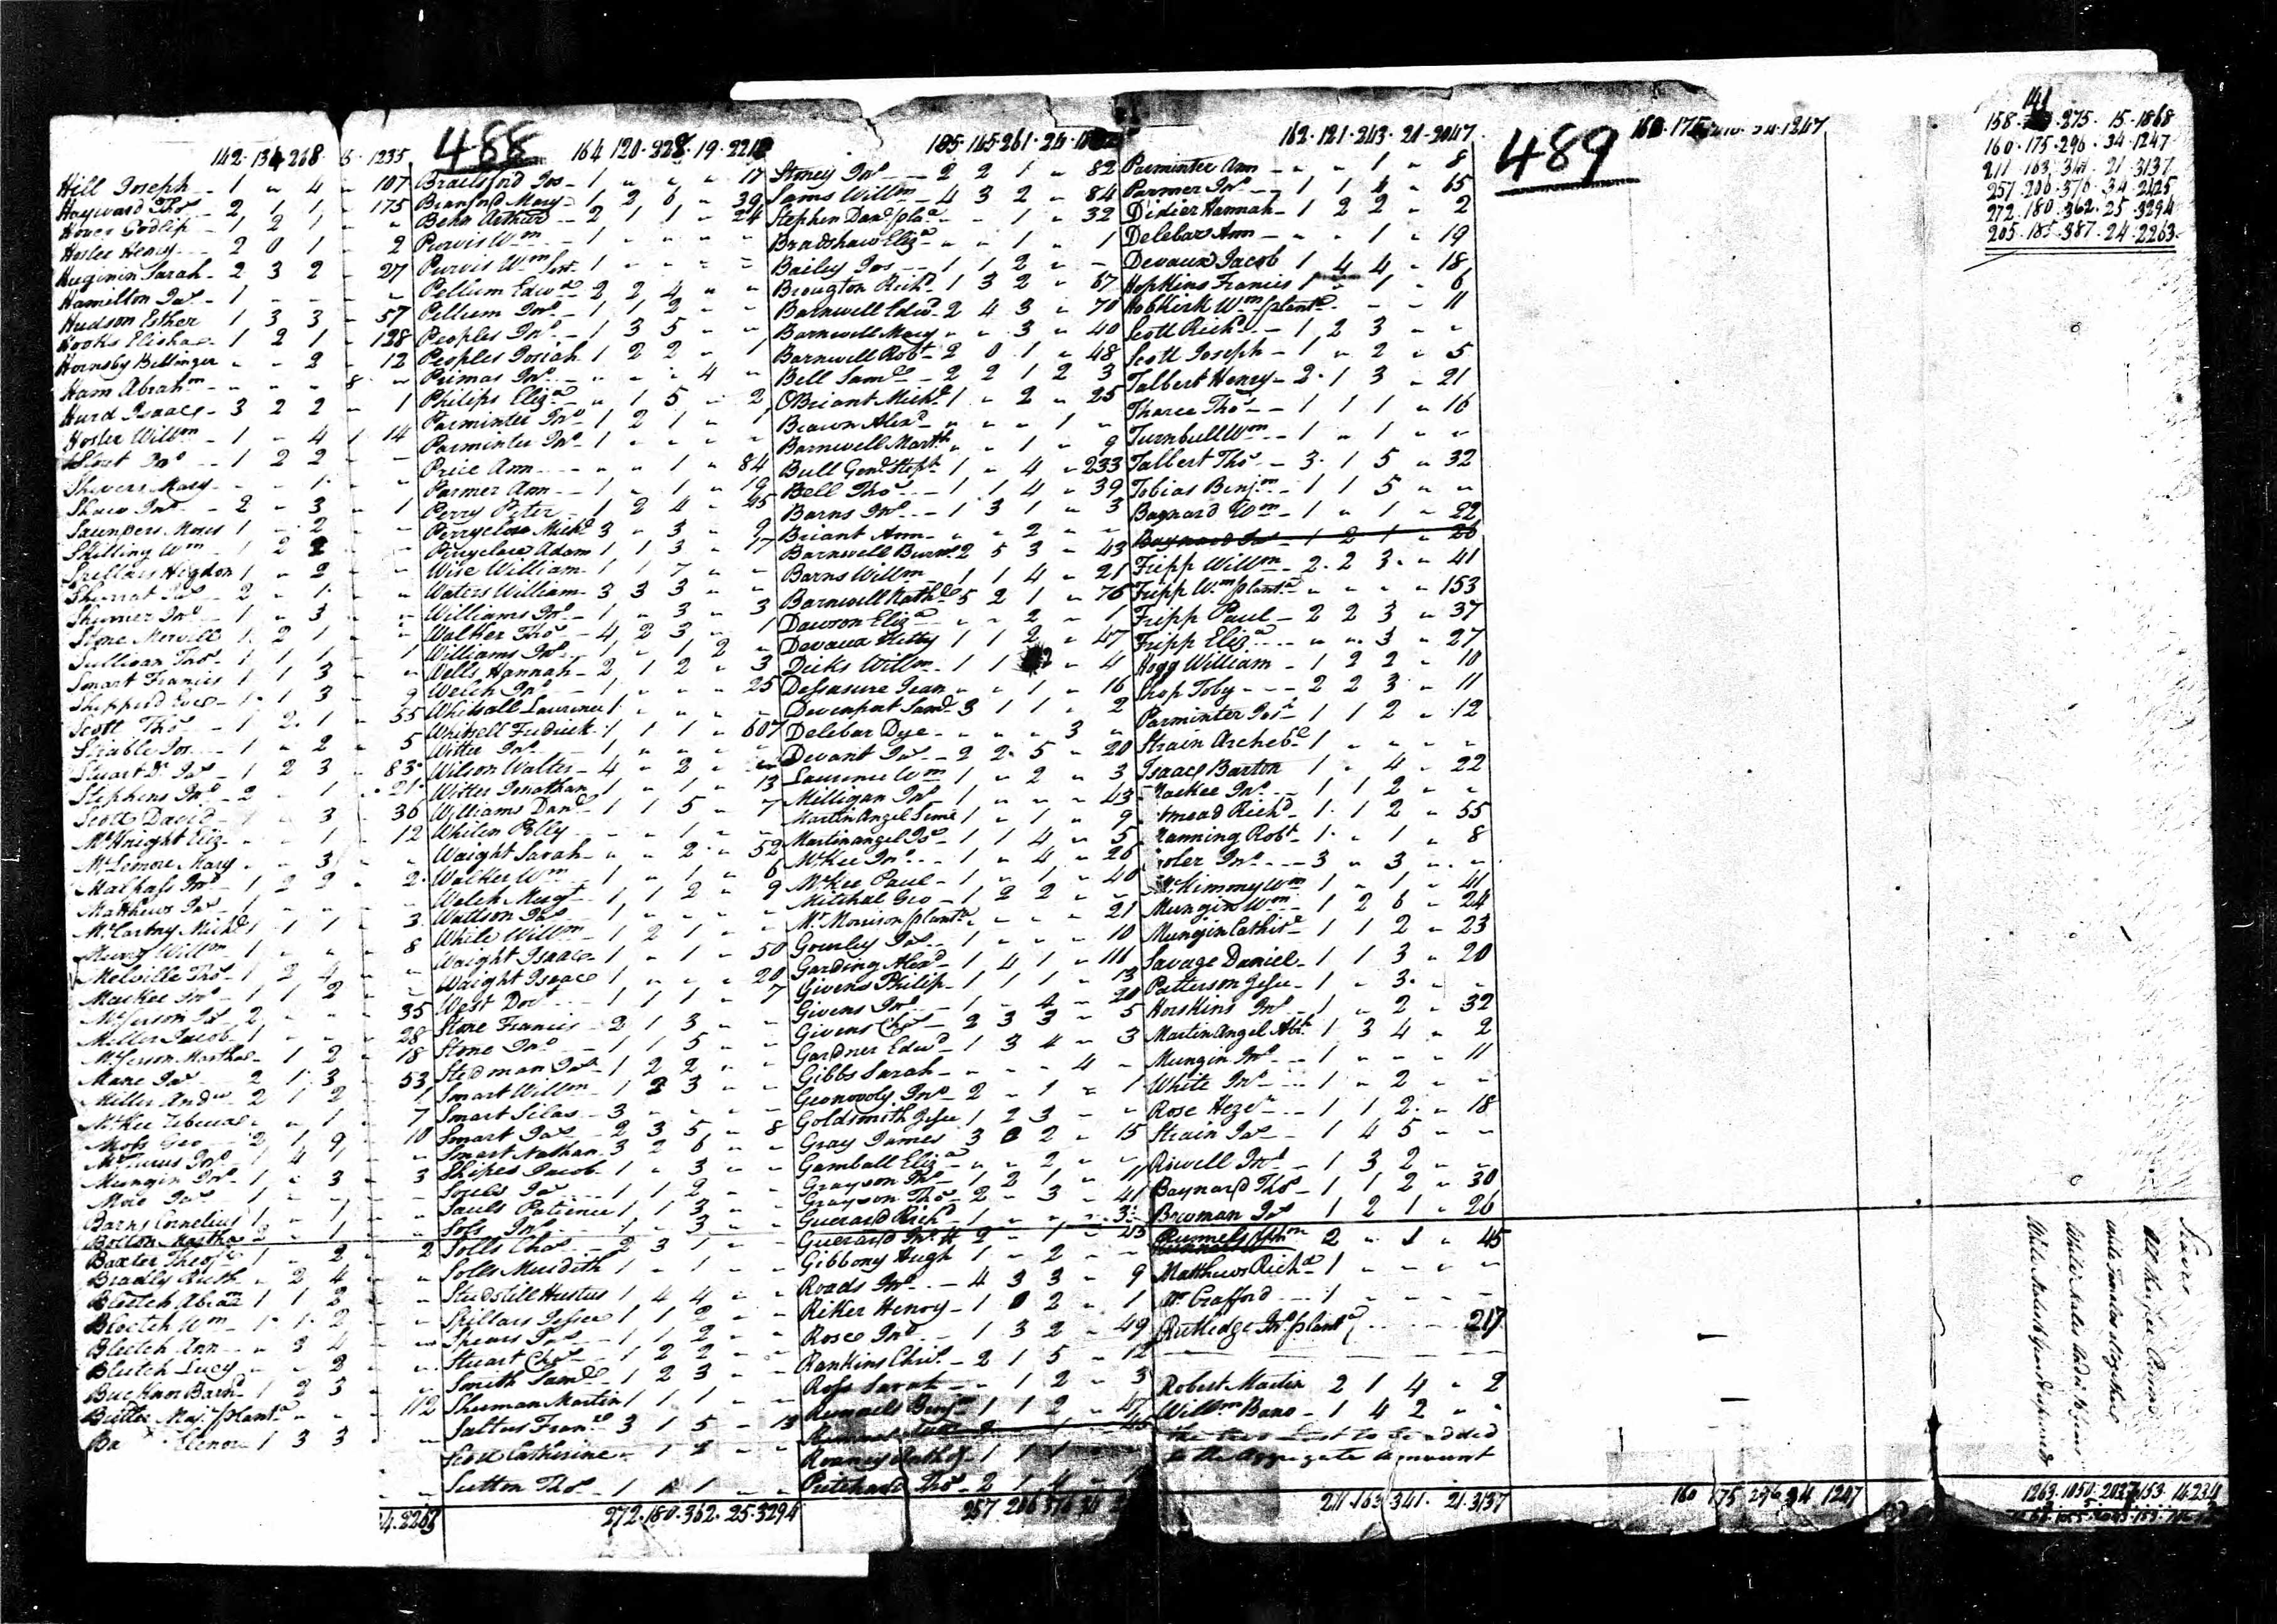 142·134·268· 5· 1235
Hill Joseph - 1 " 4 - 107
Hayward Thos - 2 1 1 - 175
Hover Godlip - 1 2 1 - "
Hosler Henry - 2 0 1 - 2
Huginin Sarah - 2 3 2 - 27
Hamilton Jas - 1 - - - "
Hudson Esther 1 3 3 - 57
Hooks Elisha - 1 2 1 - 128
Hornsby Bellinger " - 2 - 12
Ham Abrahm - - - - 8 "
Hurd Isaac - 3 2 2 - 1
Hosler Willm - 1 - 4 1 14
Jno - 1 2 2 - -
Shivers Mary - - 1 - "
Shaw Jno - 2 - 3 - 1
Saunders Moses 1 - 2 - -
Skilling Wm - 1 2 2 - -
Spillars Higdon 1 - 2 - -
Sherrat Jas - 2 - 1 - "
Jno - 1 - 3 - -
Stone Mervill 1 2 1 - "
Sullivan Thos - 1 1 1 - 1
Smart Francis 1 1 3 - "
Shepperd 1 1 3 - 9
Scott Thos - 1 2 1 - 55
Strable Jos - 1 - 2 - 5
Stuart Dr Jas - 1 2 3 - 83
Stephens Jno - 2 - 1 - 21
Scott David - 3 - 36
McKnight Eliz - - 1 - 12
McLemore Mary - - 3 - "
Malpass Jno - 1 2 2 - 2
Matthews Jas - 1 - - - "
McCartny Michl 1 1 1 - 3
Willm - 1 - - - 8
Melville Thos - 1 2 4 - -
Mackee Jno - 1 1 2 - -
McPerson Is 2 - - - 35
Miller Jacob - 1 - - - 28
McPerson Martha - 1 2 - 18
Mane Jas - 2 1 3 - 53
Miller Andw - 2 1 2 - 1
McKee Rebecca - " - 1 - 7
Moss Geo - 2 1 9 - 10
Jno - 1 4 1 - "
Mungin Jno - 1 - 3 - 3
More Jas - 1 - 1 - -
Barns Cornelius 1 - 1 - -
Bolton Martha - - 1 - "
Baxter Theos 1 - 2 - 2
Bradly Ruth - 2 4 - "
Bleetch Abram 1 1 2 - "
Bleetch Wm - 1 1 2 - "
Bleetch Ann - - 3 4 - "
Blutch Lucy - - 2 - "
Bucknor Barnd - 1 2 3 - "
Butler Maj. plantn - - - - 112
Ba Elenor - 1 3 3 - "
4.2263
488
164·120·228·19·2218
Brailsford Jos - 1 - - - 17
Branford Mary - 1 2 6 - 39
Beha Arthur - 2 1 1 - 24
Purvis Wm - 1 - - - -
Purvis Wm Senr - 1 - - - -
Pellum Edwd 2 2 4 - -
Pellum Jno - 1 1 2 - -
Peoples Jno - 1 3 5 - -
Peoples Josiah 1 2 2 - 1
Primas Jno - - - - 4 -
Philips Eliza - " 1 5 - 2
Parminter Jno 1 2 1 - 1
Parminter Jno 1 - - - -
Price Ann - - - 1 - 84
Parmer Ann - 1 - 1 - 19
Perry Peter - 1 2 4 - 45
Perryclear Michl 3 - 3 - 9
Perryclear Adam 1 1 3 - 17
Wise William - 1 1 7 - -
Waters William - 3 3 3 - -
Williams Jno - 1 - 3 - 3
Walker Thos - 4 2 3 - 1
Williams Jno - 1 - 1 2 -
Wells Hannah - 2 1 2 - 3
Welch Jno - 1 - - - 25
Whitsall Laurence 1 - - - -
Whitsell Fredrick 1 1 1 - 607
Witter Jno - 1 - - - -
Wilson Walter - 4 - 2 - -
Witter Jonathan 1 - 1 - 13
Williams Danl 1 1 5 - 7
Whiten Polly - - 1 - -
Waight Sarah - " - 2 - 52
Walker Wm - 1 - 1 - 6
Welch Margt - 1 1 2 - 9
Wattson Jas - 1 - - - -
White Willm - 1 2 1 - -
Waight Isaac - 1 - 1 - 50
Waight Isaac 1 - - - 20
West Dor - 1 1 1 - 7
Stone Francis - 2 1 3 - -
Stone Jno - 1 1 5 - -
Stedman Jas - 1 2 2 - -
Smart Willm - 1 2 3 - -
Smart Silas - 3 - - - -
Smart Jas - 2 3 5 - 8
Smart Nathan - 3 2 6 - -
Shipes Jacob - 1 - 3 - -
Souls Jas - 1 1 2 - -
Sauls Patience 1 1 3 - -
Sols Jno - 1 - 3 - -
Solls Chas - 2 3 1 - -
Solls Meridith 1 - 1 - -
Studstill Hustus 1 4 4 - -
Spillars Jessee 1 1 2 - -
Spears Jas - 1 1 2 - -
Stuart Chas - 1 2 2 - -
Smith Saml - 1 2 3 - -
Shuman Martin 1 1 1 - -
Saltus Franes 3 1 5 - 13
Scott Catherine - 1 1 - -
Sutton Thos - 1 1 1 - -
272·180·362·25·3294
185·145·261·24·
Stoney Jno - 2 2 1 - 82
Sams Willm - 4 3 2 - 84
Stephen Danl plan - - 1 - 32
Bradshaw Eliza - - 1 - 1
Bailey Jos - 1 1 2 - -
Brougton Richd - 1 3 2 - 67
Barnwell Edwd - 2 4 3 - 70
Barnwell Mary - - 3 - 40
Barnwell Robt - 2 0 1 - 48
Bell Saml - 2 2 1 2 3
OBriant Michl 1 - 2 - 25
Brawn Alexr - - - 1 -
Barnwell Marth - - 1 - 9
Bull Genl Steph 1 - 4 - 233
Bell Thos - 1 1 4 - 39
Barns Jno - 1 3 1 - 3
Briant Ann - - 2 - -
Barnwell 2 5 3 - 43
Barns Willm - 1 1 4 - 21
Barnwell Nathl 5 2 1 - 76
Dawson Eliza - - 2 - 1
Devaux Hetty 1 1 2 - 47
Dicks Willm - 1 1 2 - 4
Desasure Jean - - 1 - 16
Devenport Saml 3 1 1 - 2
Delebar Dye - - - 3 -
Devant Jas - 2 2 5 - 20
Laurence Wm 1 - 2 - 3
Milligan Jno - 1 - - - 43
Martin Angel Sime 1 - 1 - 9
Martinangel Is 1 1 4 - 5
McKee Jno - 1 - 4 - 26
McKee Paul - 1 - 1 - 40
Mitchal Geo - 1 2 2 - -
Mr. Morrison plantn - - - 21
Gourley Jas - 1 - - - 10
Garding Alexr - 1 4 1 - 111
Givens Philip - 1 1 1 - 13
Givens Jno - 1 - 4 - 20
Givens Chas - 2 3 3 - 5
Gardner Edwd - 1 3 4 - 3
Gibbs Sarah - - - 4 -
Genovoly Jno - 2 - 1 - 1
Goldsmith Jesse 1 2 3 - -
Gray James 3 0 2 - 15
Gamball Eliza - - 2 - -
Grayson Jno - 1 2 1 - 11
Grayson Thos - 2 - 3 - 41
Guerard Richd - 1 - - -
Guerard Jno H 2 - 1 - 23
Gibbony Hugh 1 - 2 - -
Roads Jno - 4 3 3 - 9
Riker Henry - 1 0 2 - 1
Rose Jno - 1 3 2 - 49
Rankins Chris - 2 1 5 - 12
Ross Sarah - - 1 2 - 3
Runnels Benjn 1 1 2 - 47
Roaney Anthy - 1 1 1 -
Pritchard Thos - 2 1 4 -
257 206 376 34
162·121·243·21·2047
Parminter Ann - - - 1 - 8
Parmer Jno - 1 1 4 - 65
Didier Hannah - 1 2 2 - 2
Delebar Ann - - - 1 - 19
Devaux Jacob 1 4 4 - 18
Hopkins Francis 1 - 1 - 6
Hobkirk Wm plantn - - - 11
Scott Richd - 1 2 3 - -
Scott Joseph - 1 - 2 - 5
Talbert Henry - 2 1 3 - 21
Tharee Thos - 1 1 1 - 16
Turnbull Wm - 1 - 1 - -
Talbert Thos - 3 1 5 - 32
Tobias Benjm - 1 1 5 - -
Baynard Wm - 1 - 1 - 22
Baynard Jas - 1 2 1 - 26
Fripp Willm - 2 2 3 - 41
Fripp Wm plantn - - - - 153
Fripp Paul - 2 2 3 - 37
Fripp Eliza - - - 3 - 27
Hogg William - 1 2 2 - 10
Chop Toby - - 2 2 3 - 11
Parminter Jos - 1 1 2 - 12
Strain Archebd 1 - - - -
Isaac Barton 1 - 4 - 22
Mackee Jno - 1 1 2 - -
Richd - 1 1 2 - 55
Manning Robt - 1 - 1 - 8
Jno - 3 - 3 - -
McKimmy Wm 1 - 1 - 41
Mungin Wm - 1 2 6 - 24
Mungin Cathir - 1 1 2 - 23
Savage Daniel - 1 1 3 - 20
Patterson Jesse - 1 - 3 - -
Horskins Jno - 1 - 2 - 32
Martin Angel Abr 1 3 4 - 2
Mungin Jno - 1 - - - 11
White Jno - 1 - 2 - -
Rose Hezr - 1 1 2 - 18
Strain Jas - 1 4 5 - -
Rowell Jno - 1 3 2 - -
Baynard Thos - 1 1 2 - 30
Bowman Jas 1 2 1 - 26
Runnels 2 - 1 - 45
Matthews Richd 1 - - - -
Mr Crafford - 1 - - - -
Rutledge Jno plantn - - - 217
Robert Martin 2 1 4 - 2
Willm Bano - 1 4 2 - -
the two Last to be added
to the Aggregate Amount
211·163·341·21·3137
489
160 175 296 34 1247
141
158· 275·15·1868
160·175·296·34·1247
211 163 341 21 3137
257·206·376·34·2425
272·180·362·25·3294
205·185·387·24·2263
Slaves
All other free Persons
White Females altogether
White Males under 16 years
White Males 16 years & upwards
1263·1050·2037·153·14234